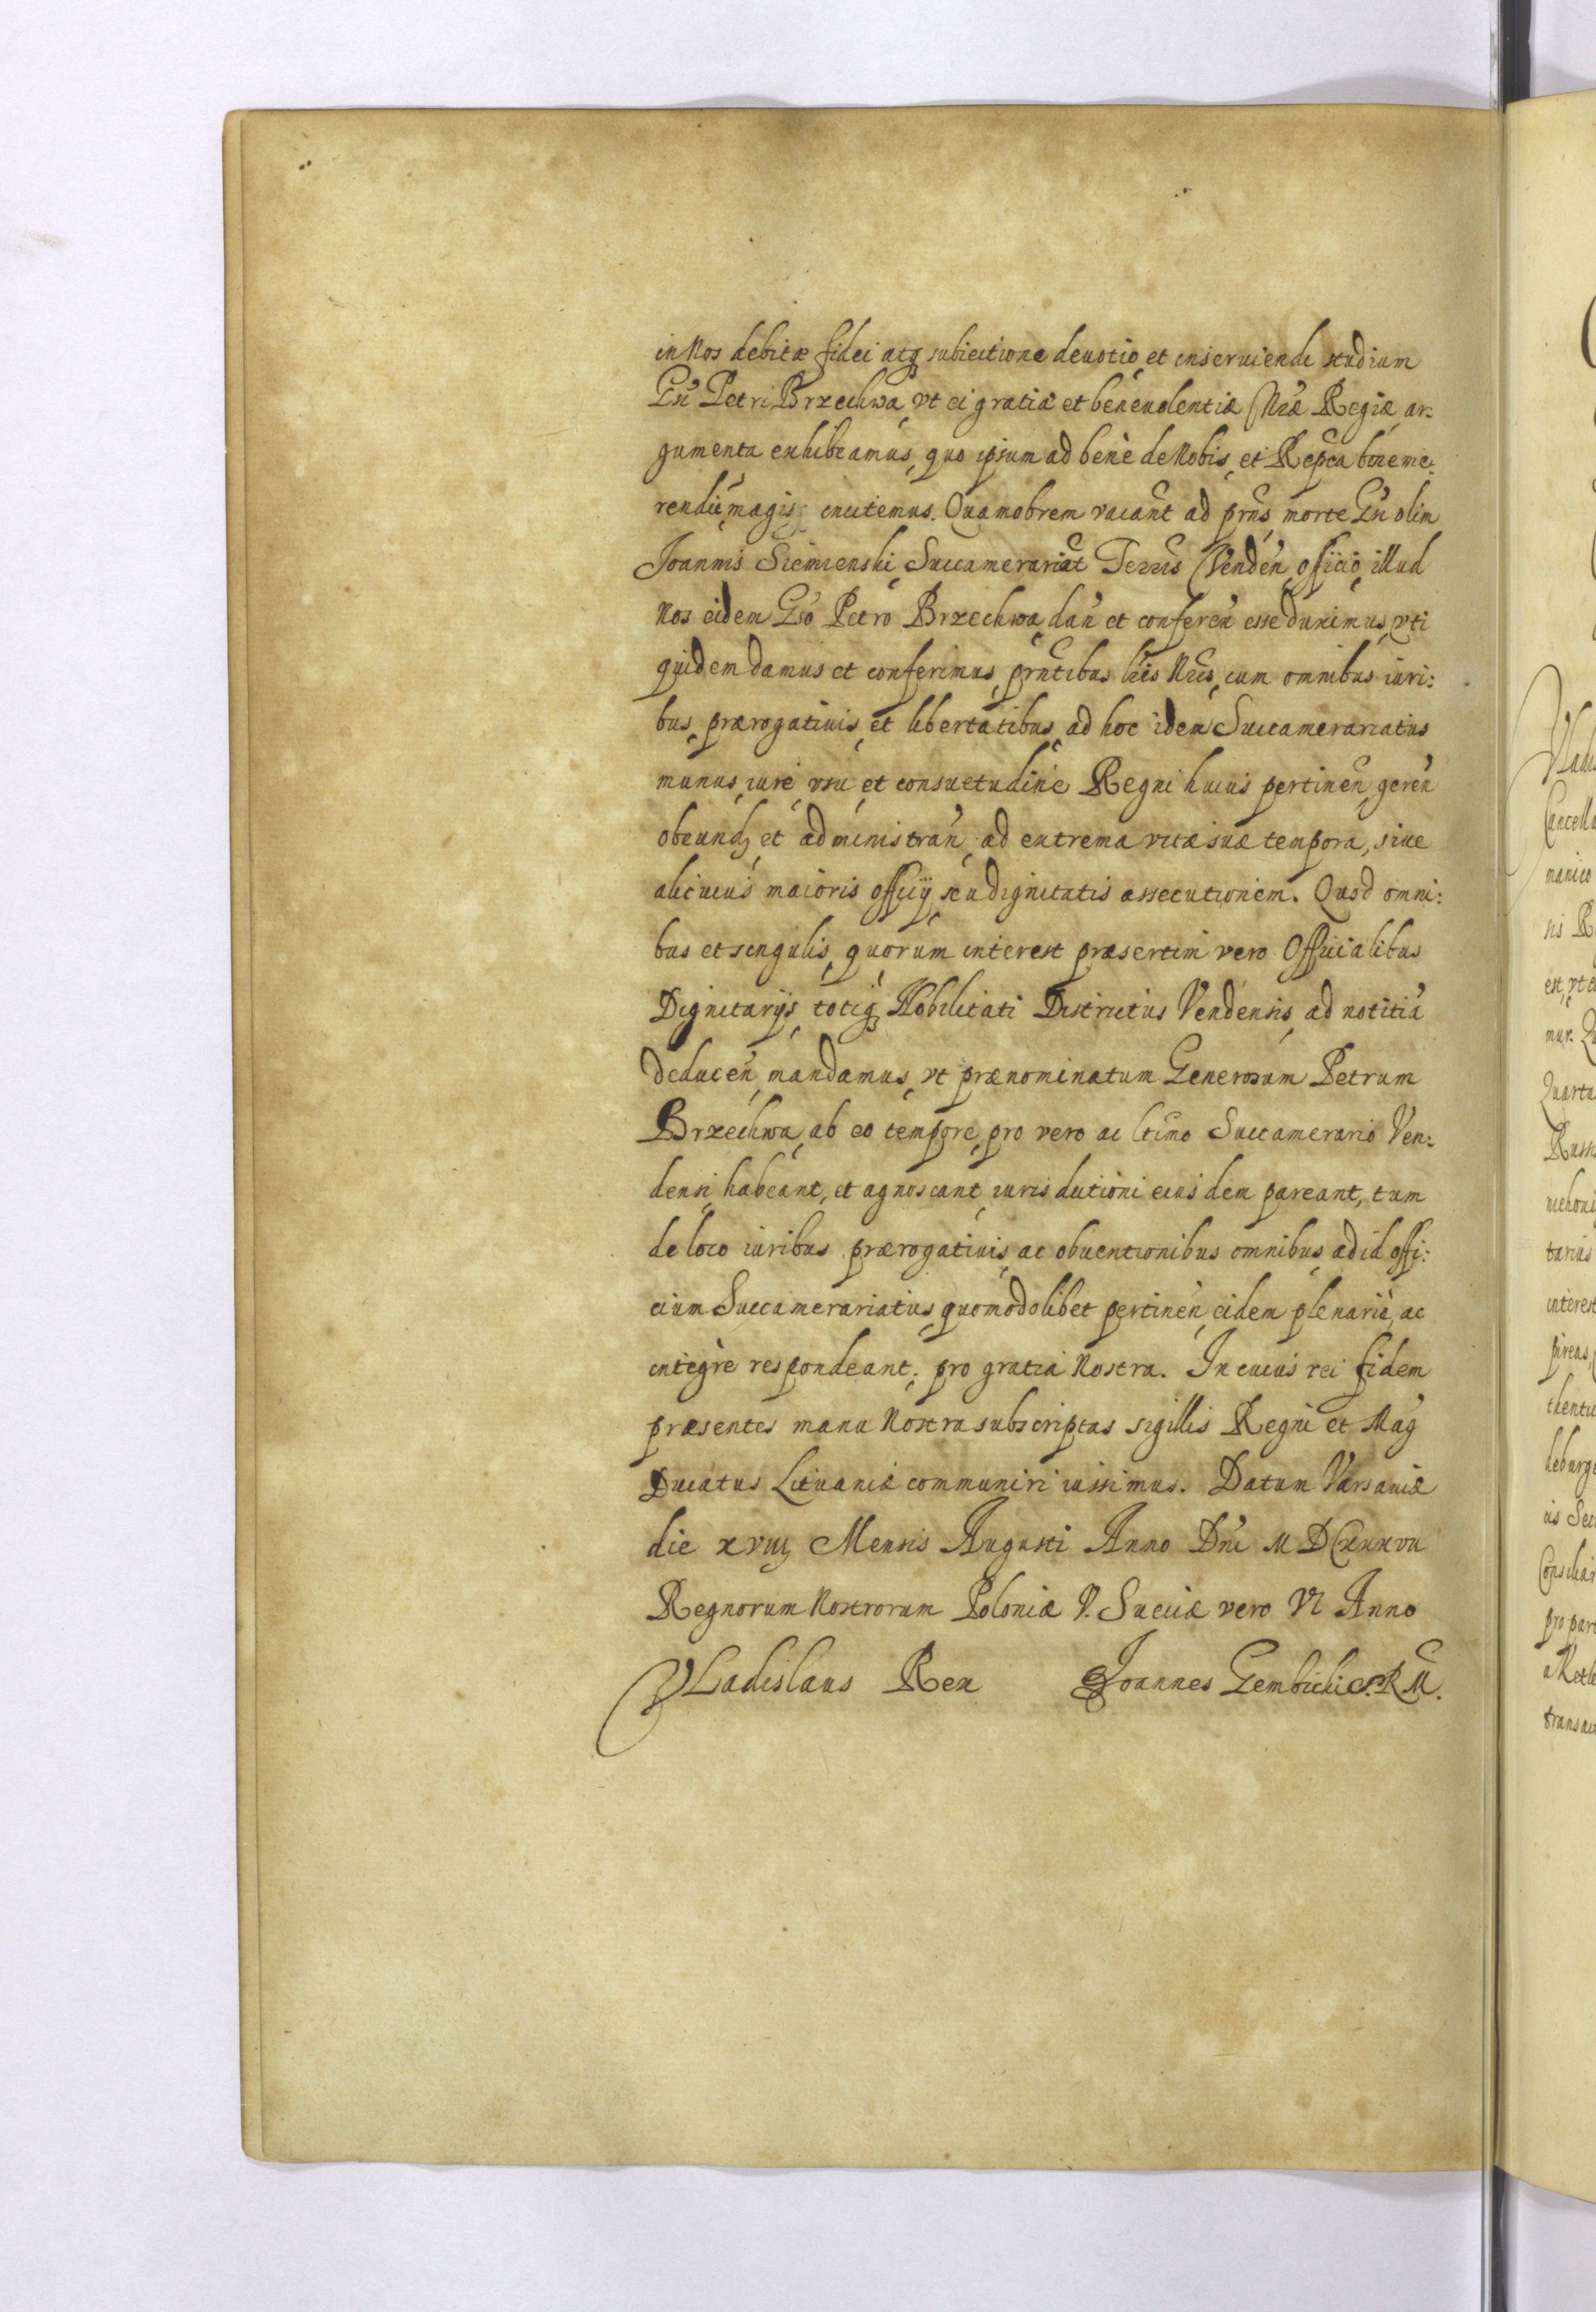 in Nos debitæ fidei atq subiectione deuotio, et inseruiendi studium
Gsi Petri Brzechwa, vt ei gratiæ et beneuolentiæ Nræ Regiæ ar:
gumenta exhibeamus, quo ipsum ad benè de Nobis, et Repca bene me:
rendū, magis incitemus. Quamobrem vacant ad prns, morte Gsi olim
Joannis Siemienski, Succamerariat Terris Venden, officio, illud
Nos eidem Gso Petro Brzechwa, dan et conferen esse duximus, vti
quidem damus et conferimus, prntibus lris Nris, cum omnibus iuri:
bus, prærogatiuis, et libertatibus, ad hoc idem Succamerariatus
munus, iure, vsu, et consuetudine Regni huius pertinen, geren
obeund, et administran, ad extrema vitæ suæ tempora, siue
alicuius maioris officij seu dignitatis assecutionem. Quod omni:
bus et singulis, quorum interest præsertim vero Officialibus
Dignitarijs, totiq Nobilitati Districtus Vendensis, ad notitiā
deducen, mandamus, vt prænominatum Generosum Petrum
Brzechwa, ab eo tempore, pro vero ac ltimo Succamerario Ven:
densi, habeant, et agnoscant, iurisdictioni eiusdem pareant, tum
de loco iuribus prærogatiuis, ac obuentionibus omnibus, ad id offi:
cium Succamerariatus, quomodolibet pertinen, eidem plenariè, ac
integrè respondeant, pro gratia Nostra. In cuius rei fidem
præsentes manu Nostra subscriptas sigillis Regni et Mag
Ducatus Lituaniæ communiri iussimus. Datum Varsauiæ
die xviij Mensis Augusti Anno Dni MDCxxxvii
Regnorum Nostrorum Poloniæ V. Sueciæ vero VI Anno
Vladislaus Rex Joannes Gembicki S.R.M.